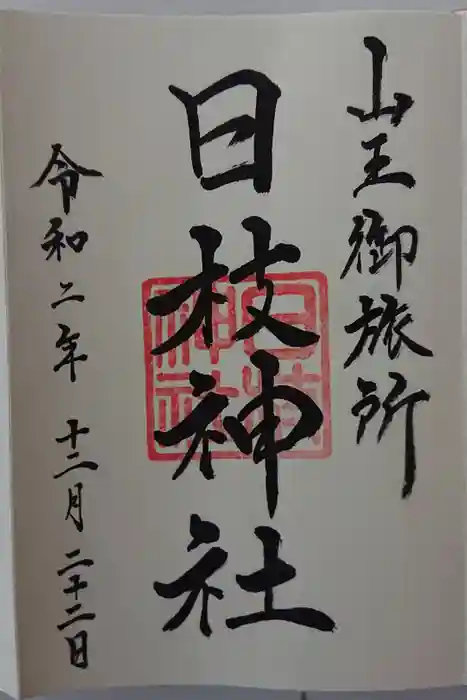 山王御旅所
日枝神社
日枝
神社
令和二年十二月二十二日